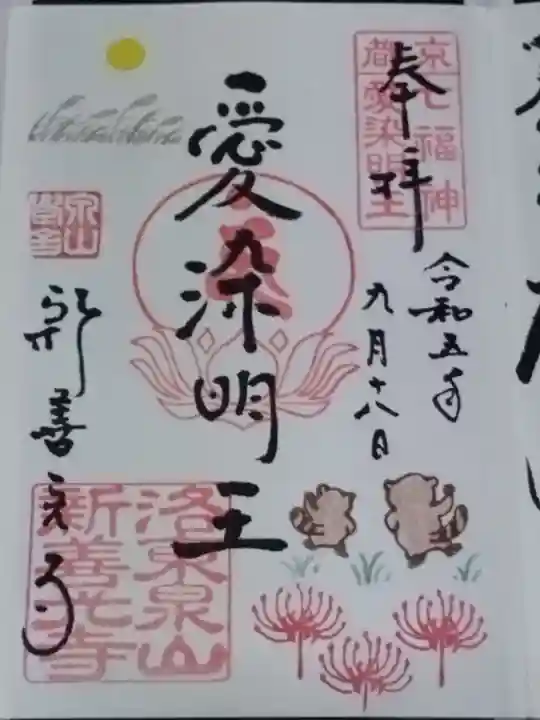 奉拝
京都七福神
愛染明王
令和五年
九月十八日
愛染明王
新善光寺
泉山
洛東泉山
新善光寺